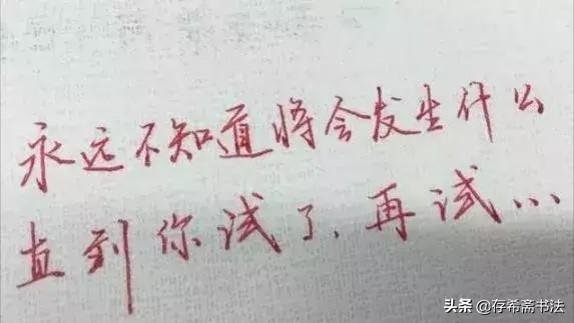 永远不知道将会发生什么
直到你试了、再试...
头条 @存希斋书法